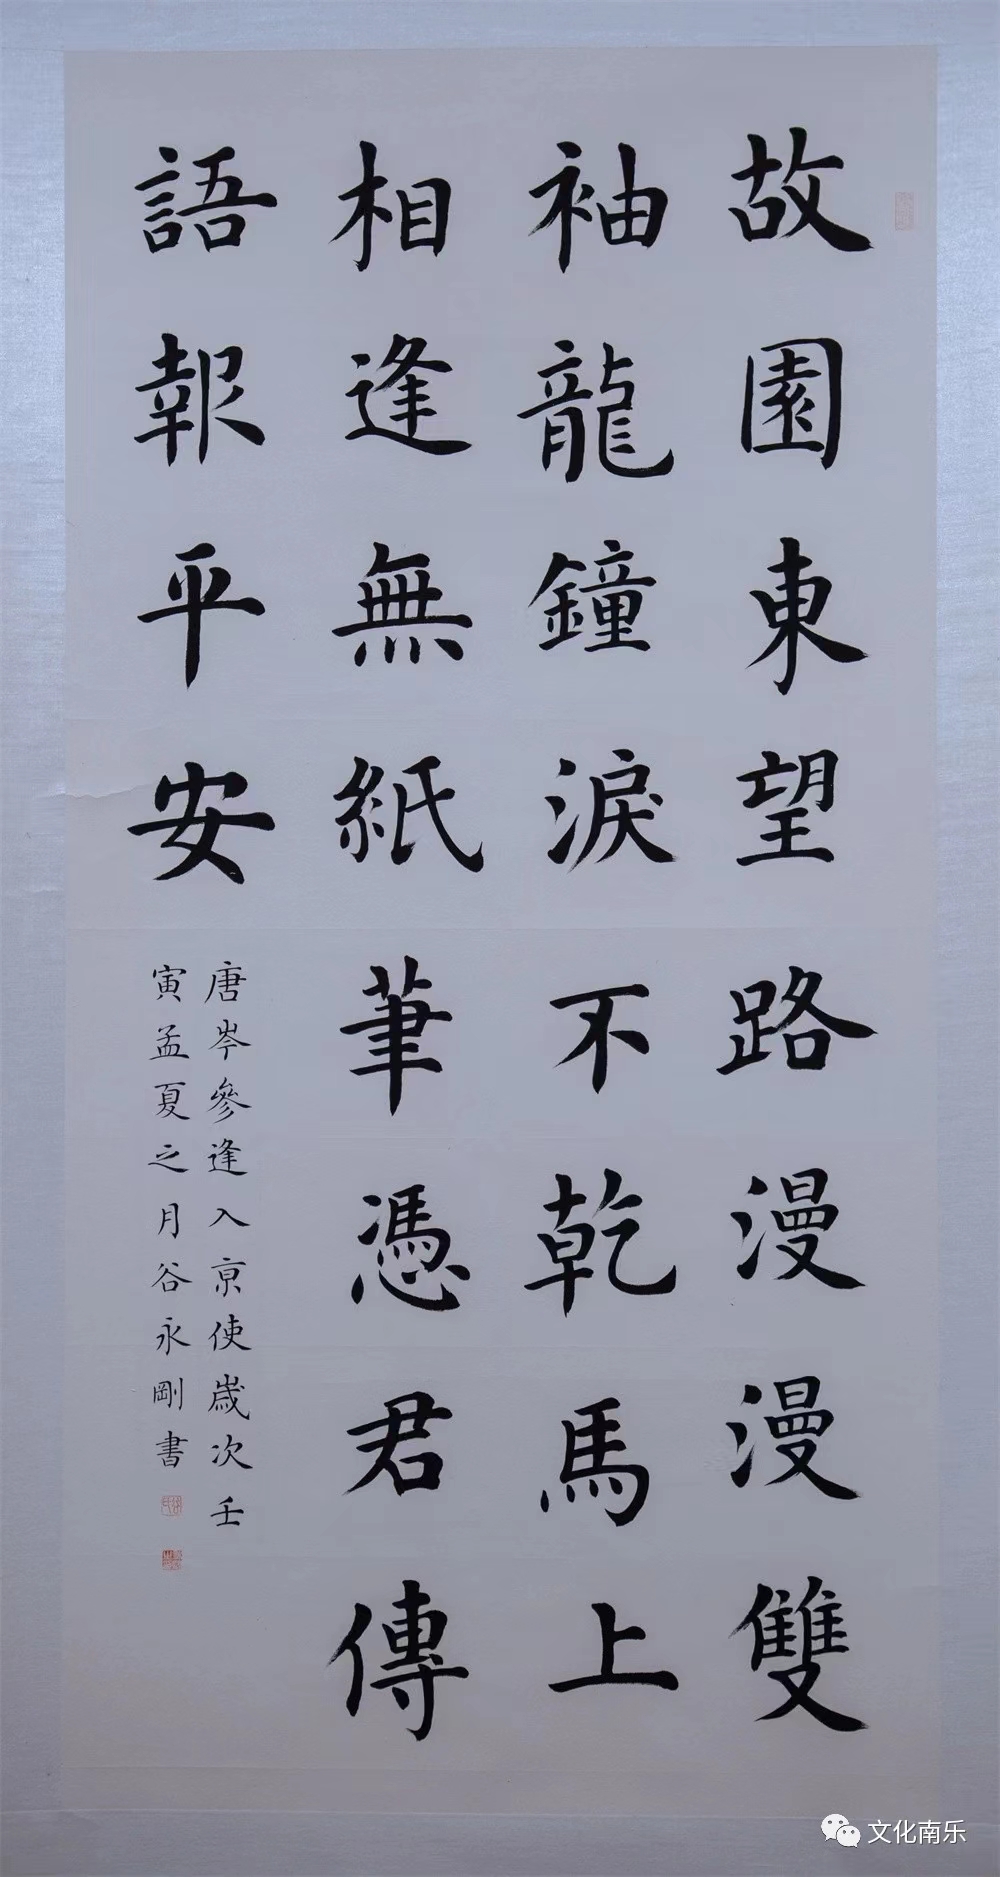 故園東望路漫漫雙
袖龍鐘淚不乾馬上
相逢無紙筆憑君傳
語報平安
唐岑參逢入京使歲次壬
寅孟夏之月谷永剛書
文化南乐